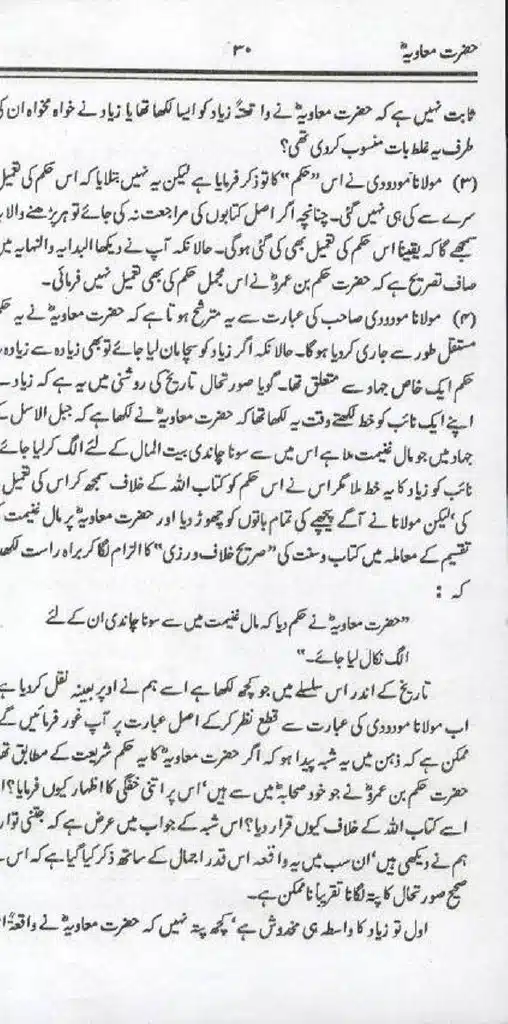 حضرت معاویہؓ
۳۰
ثابت نہیں ہے کہ حضرت معاویہؓ نے واقعتاً زیاد کو ایسا لکھا تھا یا زیاد نے خواہ مخواہ ان کی
طرف یہ غلط بات منسوب کر دی تھی؟
(۳) مولانا مودودی نے اس "حکم" کا تو ذکر فرمایا ہے لیکن یہ نہیں بتلایا کہ اس حکم کی تعمیل
سرے سے کی ہی نہیں گئی۔ چنانچہ اگر اصل کتابوں کی مراجعت نہ کی جائے تو ہر پڑھنے والا یہ
سمجھے گا کہ یقیناً اس حکم کی تعمیل بھی کی گئی ہوگی۔ حالانکہ آپ نے دیکھا البدایہ والنہایہ میں
صاف تصریح ہے کہ حضرت حکم بن عمروؓ نے اس مجمل حکم کی بھی تعمیل نہیں فرمائی۔
(۴) مولانا مودودی صاحب کی عبارت سے یہ مترشح ہوتا ہے کہ حضرت معاویہؓ نے یہ حکم
مستقل طور سے جاری کردیا ہوگا۔ حالانکہ اگر زیاد کو سچا مان لیا جائے تو بھی زیادہ سے زیادہ
حکم ایک خاص جہاد سے متعلق تھا۔ گویا صورتحال تاریخ کی روشنی میں یہ ہے کہ زیاد
اپنے ایک نائب کو خط لکھتے وقت یہ لکھا تھا کہ حضرت معاویہؓ نے لکھا ہے کہ جبل الاسل
جہاد میں جو مال غنیمت ملا ہے اس میں سے سونا چاندی بیت المال کے لئے الگ کرلیا جائے
نائب کو زیاد کا یہ خط ملا مگر اس نے اس حکم کو کتاب اللہ کے خلاف سمجھ کر اس کی تعمیل
کی' لیکن مولانا نے آگے پیچھے کی تمام باتوں کو چھوڑ دیا اور حضرت معاویہؓ پر مال غنیمت
تقسیم کے معاملہ میں کتاب و سنت کی "صریح خلاف ورزی" کا الزام لگا کر براہ راست لکھ
کہ :
"حضرت معاویہؓ نے حکم دیا کہ مال غنیمت میں سے سونا چاندی ان کے لئے
الگ نکال لیا جائے۔"
تاریخ کے اندر اس سلسلے میں جو کچھ لکھا ہے اسے ہم نے اوپر بعینہ نقل کردیا ہے
اب مولانا مودودی کی عبارت سے قطع نظر کرکے اصل عبارت پر آپ غور فرمائیں گے
ممکن ہے کہ ذہن میں یہ شبہ پیدا ہو کہ اگر حضرت معاویہؓ کا یہ حکم شریعت کے مطابق تھا
حضرت حکم بن عمروؓ نے جو خود صحابہؓ میں سے ہیں' اس پر اتنی خفگی کا اظہار کیوں فرمایا؟
اسے کتاب اللہ کے خلاف کیوں قرار دیا؟ اس شبہ کے جواب میں عرض ہے کہ جتنی
ہم نے دیکھی ہیں' ان سب میں یہ واقعہ اس قدر اجمال کے ساتھ ذکر کیا گیا ہے کہ اس
صحیح صورتحال کا پتہ لگانا تقریباً ناممکن ہے۔
اول تو زیاد کا واسطہ ہی مخدوش ہے' کچھ پتہ نہیں کہ حضرت معاویہؓ نے واقعۃً